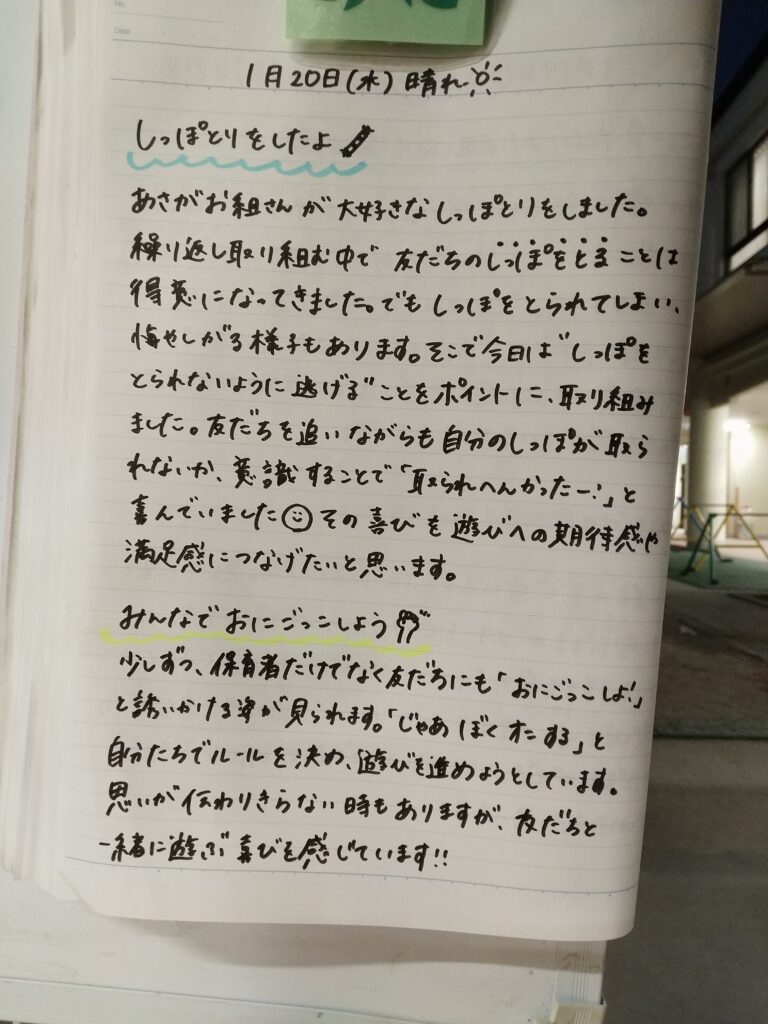 No.
Date
1月20日(水) 晴れ
しっぽとりをしたよ
あさがお組さんが大好きなしっぽとりをしました。
繰り返し取り組む中で 友だちのしっぽをとることは
得意になってきました。でもしっぽをとられてしまい、
悔やしがる様子もあります。そこで今日は"しっぽを
とられないように逃げる"ことをポイントに、取り組み
ました。友だちを追いながらも自分のしっぽが取ら
れないか、意識することで「取られへんかったー!」と
喜んでいました その喜びを遊びへの期待感や
満足感につなげたいと思います。
みんなでおにごっこしよう
少しずつ、保育者だけでなく友だちにも「おにごっこしよ!」
と誘いかける姿が見られます。「じゃあぼくオニする」と
自分たちでルールを決め、遊びを進めようとしています。
思いが伝わりきらない時もありますが、友だちと
一緒に遊ぶ喜びを感じています!!